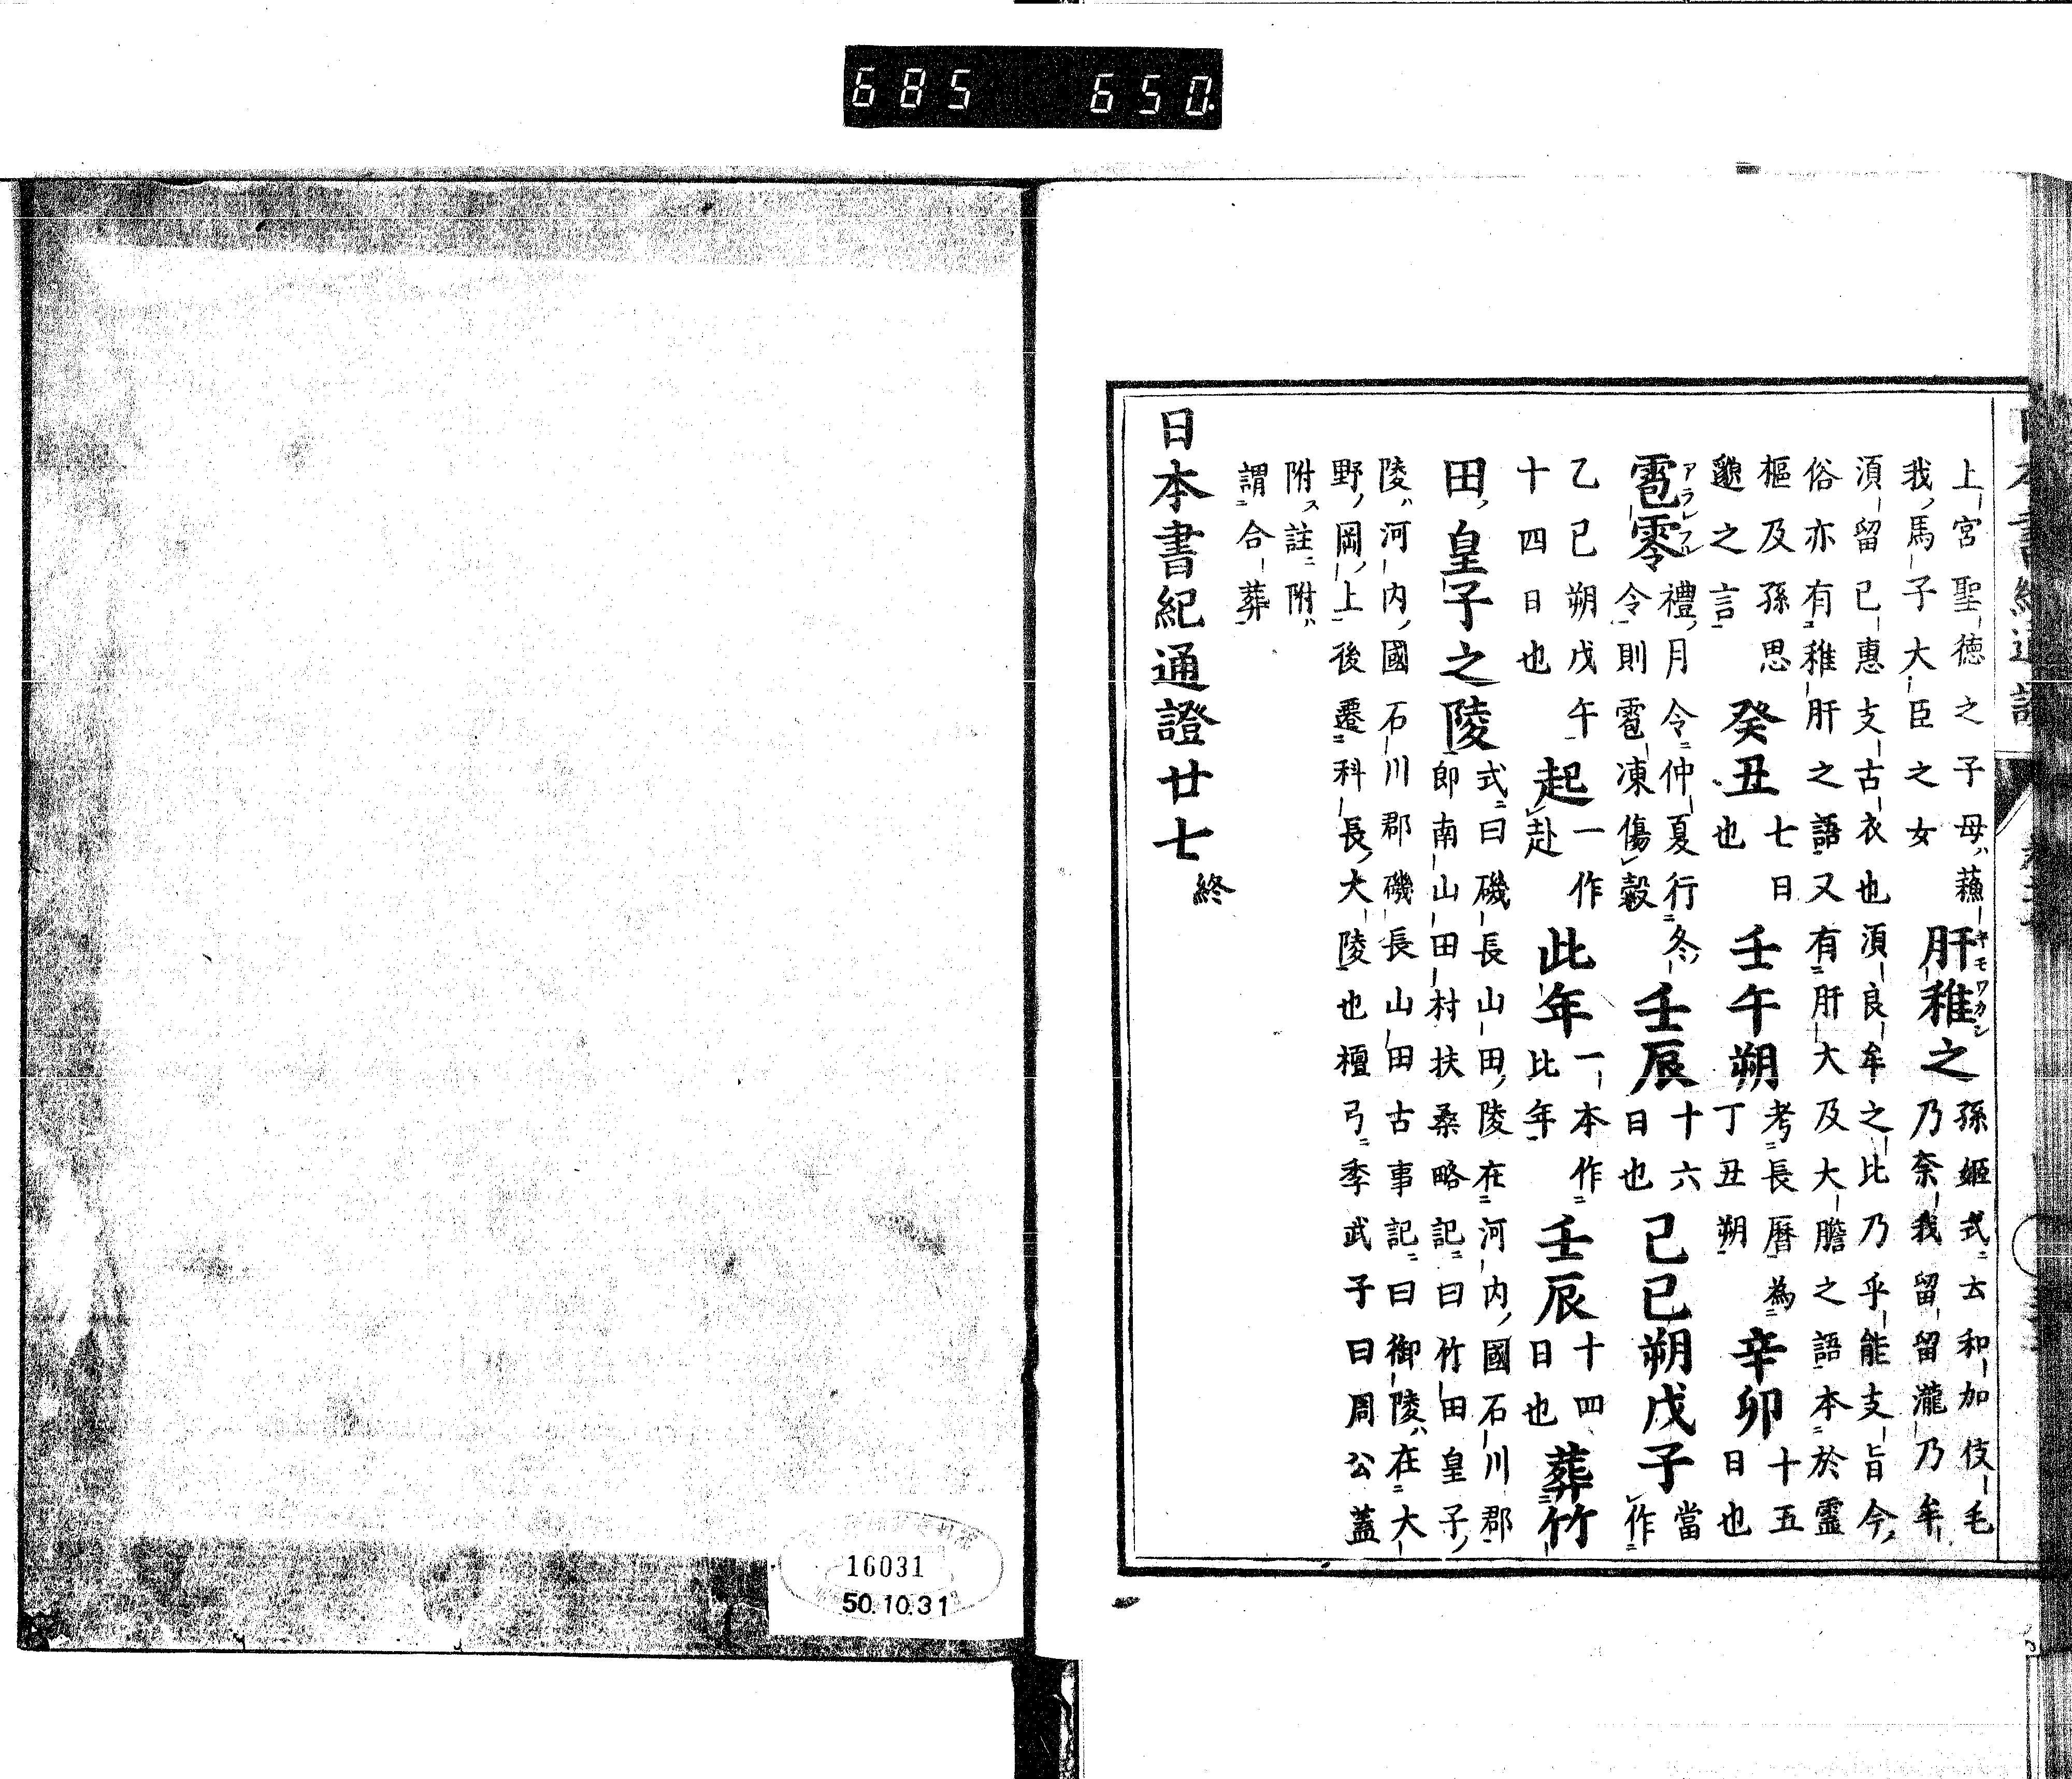 685 650.
上宮聖徳之子母ハ蘓
我ノ馬子大臣之女
肝稚之
キモワカシ
孫姫式ニ云和加伎毛
乃奈我留留瀧乃牟
湏留已惠支古衣也湏良牟之比乃乎能支旨今
俗亦有稚肝之語又有肝大及大膽之語本於靈
樞及孫思
邈之言
癸丑
七日
也
壬午朔
考長暦為
丁丑朔
辛卯
十五
日也
雹零
アラレフル
禮月令仲夏行冬
令則雹凍傷穀
壬辰
十六
日也
己巳朔戊子
當
作
乙已朔戊午
十四日也
起
一作
赴
此年
一本作
比年
壬辰
十四
日也
葬竹
田皇子之陵
式曰磯長山田陵在河内國石川郡
即南山田村扶桑略記曰竹田皇子
陵河内國石川郡磯長山田古事記曰御陵在大
野岡上後遷科長大陵也檀弓季武子曰周公蓋
附註附
謂合葬
日本書紀通證廿七終
16031
50.10.31